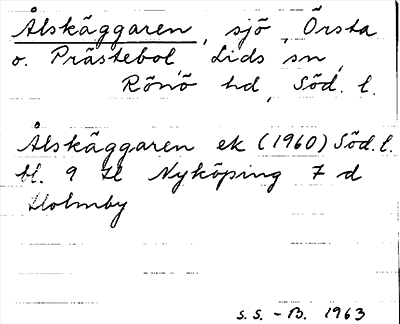 Ålskäggaren, sjö, Örsta
o. Prästebol, Lids sn,
Rönö hd, Söd. l.
Ålskäggaren ek (1960) Söd. l.
bl. 9 Nyköping 7 d
Holmby
S.S. - B. 1963